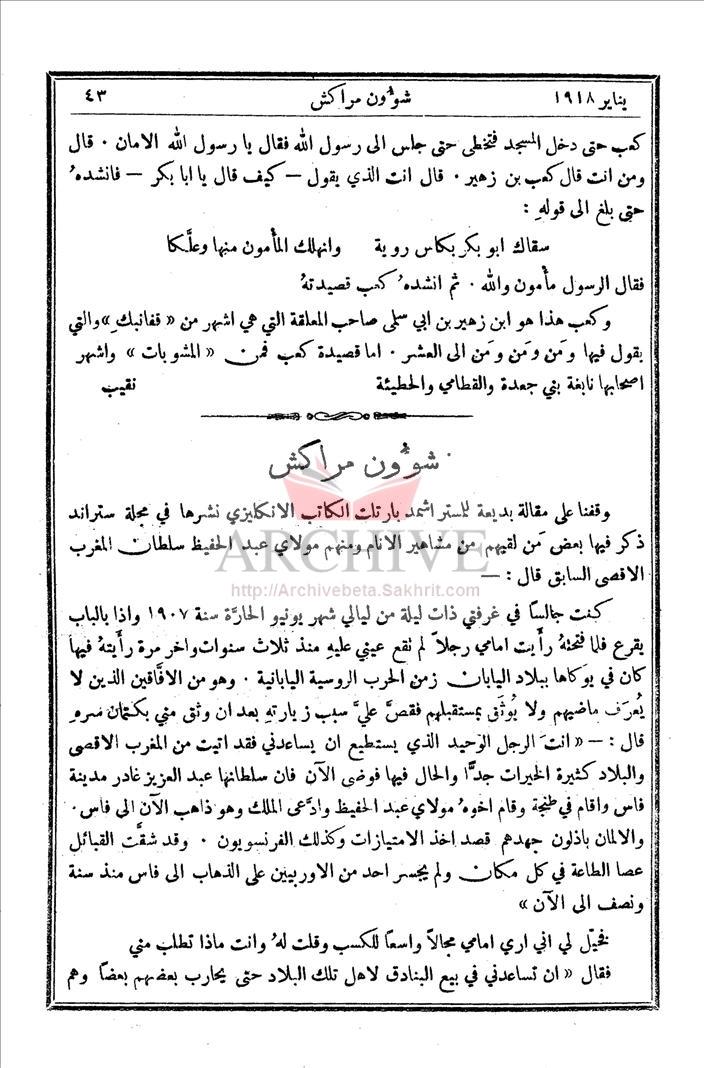 يناير ١٩١٨ شؤون مراكش ٤٣
كعب حتى دخل المسجد فتخطى حتى جلس الى رسول الله فقال يا رسول الله الامان ٠ قال
ومن انت قال كعب بن زهير ٠ قال انت الذي يقول — كيف قال يا ابا بكر — فانشدهُ
حتى بلغ الى قولهِ :
سقاك ابو بكر بكاس روية وانهلك المأمون منها وعلَّكا
فقال الرسول مأمون والله ٠ ثم انشدهُ كعب قصيدتهُ
وكعب هذا هو ابن زهير بن ابي سلمى صاحب المعلقة التي هي اشهر من « قفانبكِ » والتي
يقول فيها ومَن ومَن ومَن الى العشر ٠ اما قصيدة كعب فمن « المشوبات » واشهر
اصحابها نابغة بني جعدة والقطامي والحطيئة نقيب
شؤون مراكش
وقفنا على مقالة بديعة للمستر اشمد بارتلت الكاتب الانكليزي نشرها في مجلة ستراند
ذكر فيها بعض مَن لقيهم من مشاهير الانام ومنهم مولاي عبد الحفيظ سلطان المغرب
الاقصى السابق قال : —
ARCHIVE
http://Archivebeta.Sakhrit.com
كنت جالسًا في غرفتي ذات ليلة من ليالي شهر يونيو الحارَّة سنة ١٩٠٧ واذا بالباب
يقرع فلما فتحتهُ رأيت امامي رجلاً لم تقع عيني عليهِ منذ ثلاث سنوات واخر مرة رأيتهُ فيها
كان في يوكاها ببلاد اليابان زمن الحرب الروسية اليابانية ٠ وهو من الافَّاقين الذين لا
يُعرَف ماضيهم ولا يُوثَق بمستقبلهم فقصَّ عليَّ سبب زيارته بعد ان وثق مني بكتمان سره
قال : — « انتَ الرجل الوحيد الذي يستطيع ان يساعدني فقد اتيت من المغرب الاقصى
والبلاد كثيرة الخيرات جدًّا والحال فيها فوضى الآن فان سلطانها عبد العزيز غادر مدينة
فاس واقام في طنجة وقام اخوهُ مولاي عبد الحفيظ وادَّعى الملك وهو ذاهب الآن الى فاس ٠
والالمان باذلون جهدهم قصد اخذ الامتيازات وكذلك الفرنسويون ٠ وقد شقَّت القبائل
عصا الطاعة في كل مكان ولم يجسر احد من الاوربيين على الذهاب الى فاس منذ سنة
ونصف الى الآن »
فخيّل لي اني ارى امامي مجالاً واسعًا للكسب وقلت لهُ وانت ماذا تطلب مني
فقال « ان تساعدني في بيع البنادق لاهل تلك البلاد حتى يحارب بعضهم بعضًا وهم